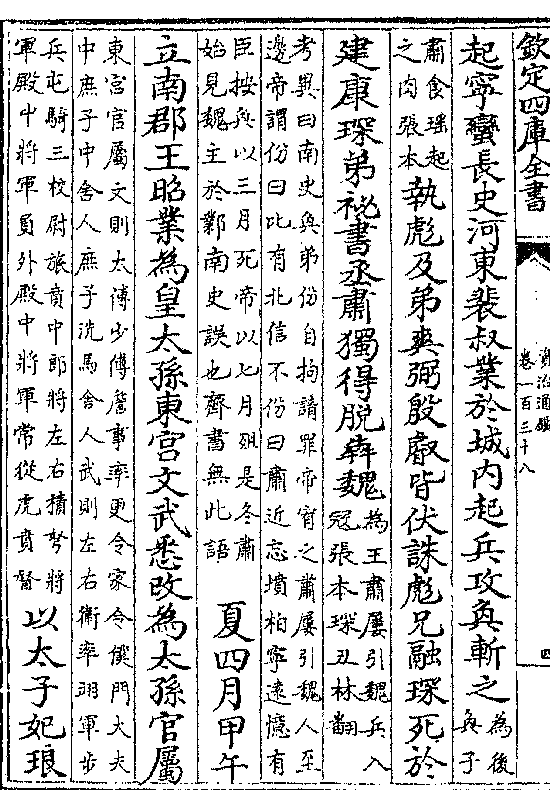 欽定四庫全書
資治通鑑
卷一百三十八
四
起寧蠻長史河東裴叔業於城内起兵攻奐斬之為後
奐子
肅食瑶起
之肉張本執彪及弟爽弼殷叡皆伏誅彪兄融琛死於
建康琛弟祕書丞肅獨得脱奔魏為王肅屢引魏兵入
冦張本琛丑林翻
考異曰南史奐弟份自拘請罪帝宥之肅屢引魏人至
邊帝謂份曰比有北信不份曰肅近忘墳柏寧遠憶有
臣按奐以三月死帝以七月殂是冬肅
始見魏主於鄴南史誤也齊書無此語
夏四月甲午
立南郡王昭業為皇太孫東宫文武悉改為太孫官屬
東宫官屬文則太傅少傅詹事率更令家令僕門大夫
中庶子中舍人庶子洗馬舍人武則左右衛率翊軍步
兵屯騎三校尉旅賁中郎將左右積弩將
軍殿中將軍員外殿中將軍常從虎賁督
以太子妃琅